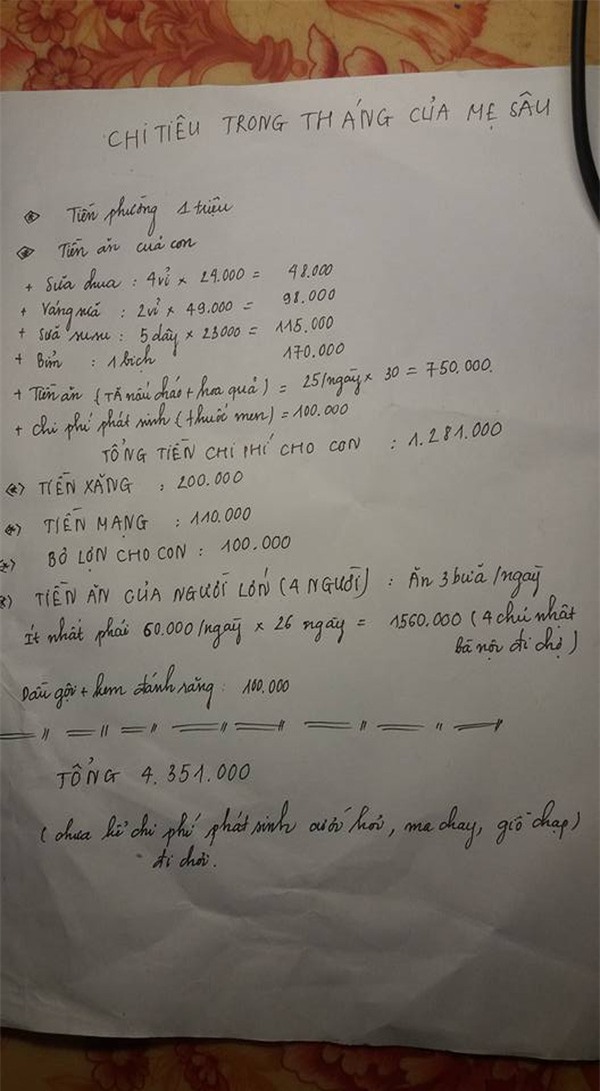 CHI TIÊU TRONG THÁNG CỦA MẸ SÂU
(*) Tiền phường 1 triệu
(*) Tiền ăn của con
+ Sữa chua : 4 vỉ x 24.000 = 48.000
+ Váng sữa : 2 vỉ x 49.000 = 98.000
+ Sữa susu : 5 dây x 23000 = 115.000
+ Bỉm : 1 bịch 170.000
+ Tiền ăn (TĂ nấu cháo + hoa quả) = 25/ngày x 30 = 750.000.
+ Chi phí phát sinh (thuốc men) = 100.000
TỔNG TIỀN CHI PHÍ CHO CON : 1.281.000
(*) TIỀN XĂNG : 200.000
(*) TIỀN MẠNG : 110.000
(*) BỎ LỢN CHO CON : 100.000
(*) TIỀN ĂN CỦA NGƯỜI LỚN (4 NGƯỜI) : Ăn 3 bữa/ngày
Ít nhất phải 60.000/ngày x 26 ngày = 1560.000 (4 chủ nhật
bà nội đi chợ)
Dầu gội + kem đánh răng : 100.000
TỔNG 4.351.000
(chưa kể chi phí phát sinh cưới hỏi, ma chay, giỗ chạp)
đi chơi.